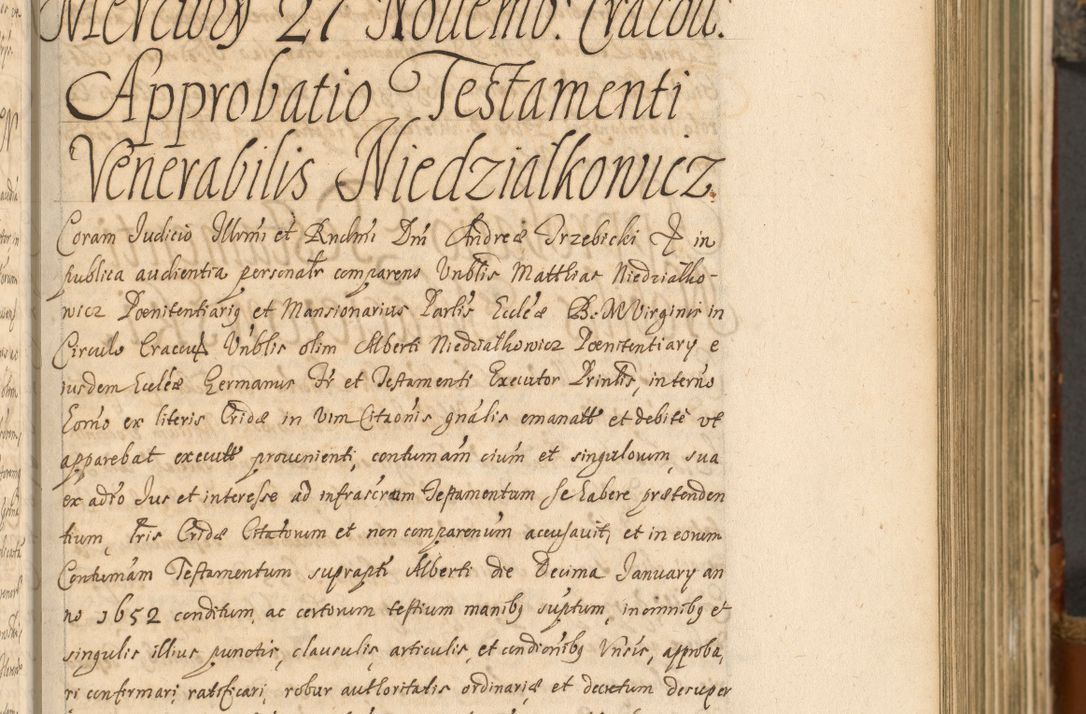 Mercurÿ 27 Novemb: Cracov:
Approbatio Testamenti
Venerabilis Niedzialkowicz
Coram Iudicio Illrmi et Rndmi Dni Andreæ Trzebicki & in
publica audientia personalr comparens Vnblis Matthias Niedzialko-
wicz Pœnitentiarig et Mansionarius Parlis Eccleæ B. M Virginis in
Circulo Craccu Vnblis olim Alberti Niedzialkowicz Pœnitentiary e
iusdem Eccleæ Germanus Fr et Testamenti Executor Prinlis, in terno
Eorno ex literis Cridæ in vim Citaonis gnalis emanatt et debite vt
apparebat executt provenienti, contumam cium et singulorum, sua
ex adto Ius et interesse ad infrascrum Testamentum se habere prætenden
tium, Lris Cridæ Citatorum et non comparenum accusavit, et in eorum
Contumam Testamentum suprapti Alberti die Decima January an
no 1652 conditum, ac certorum testium manibg suptum, in omnibg et
singulis illius punctis, clausulis, articulis, et condionibg Vnsis, approba,
ri confirmari ratificari, robur authoritatis ordinariæ et decretum desuper